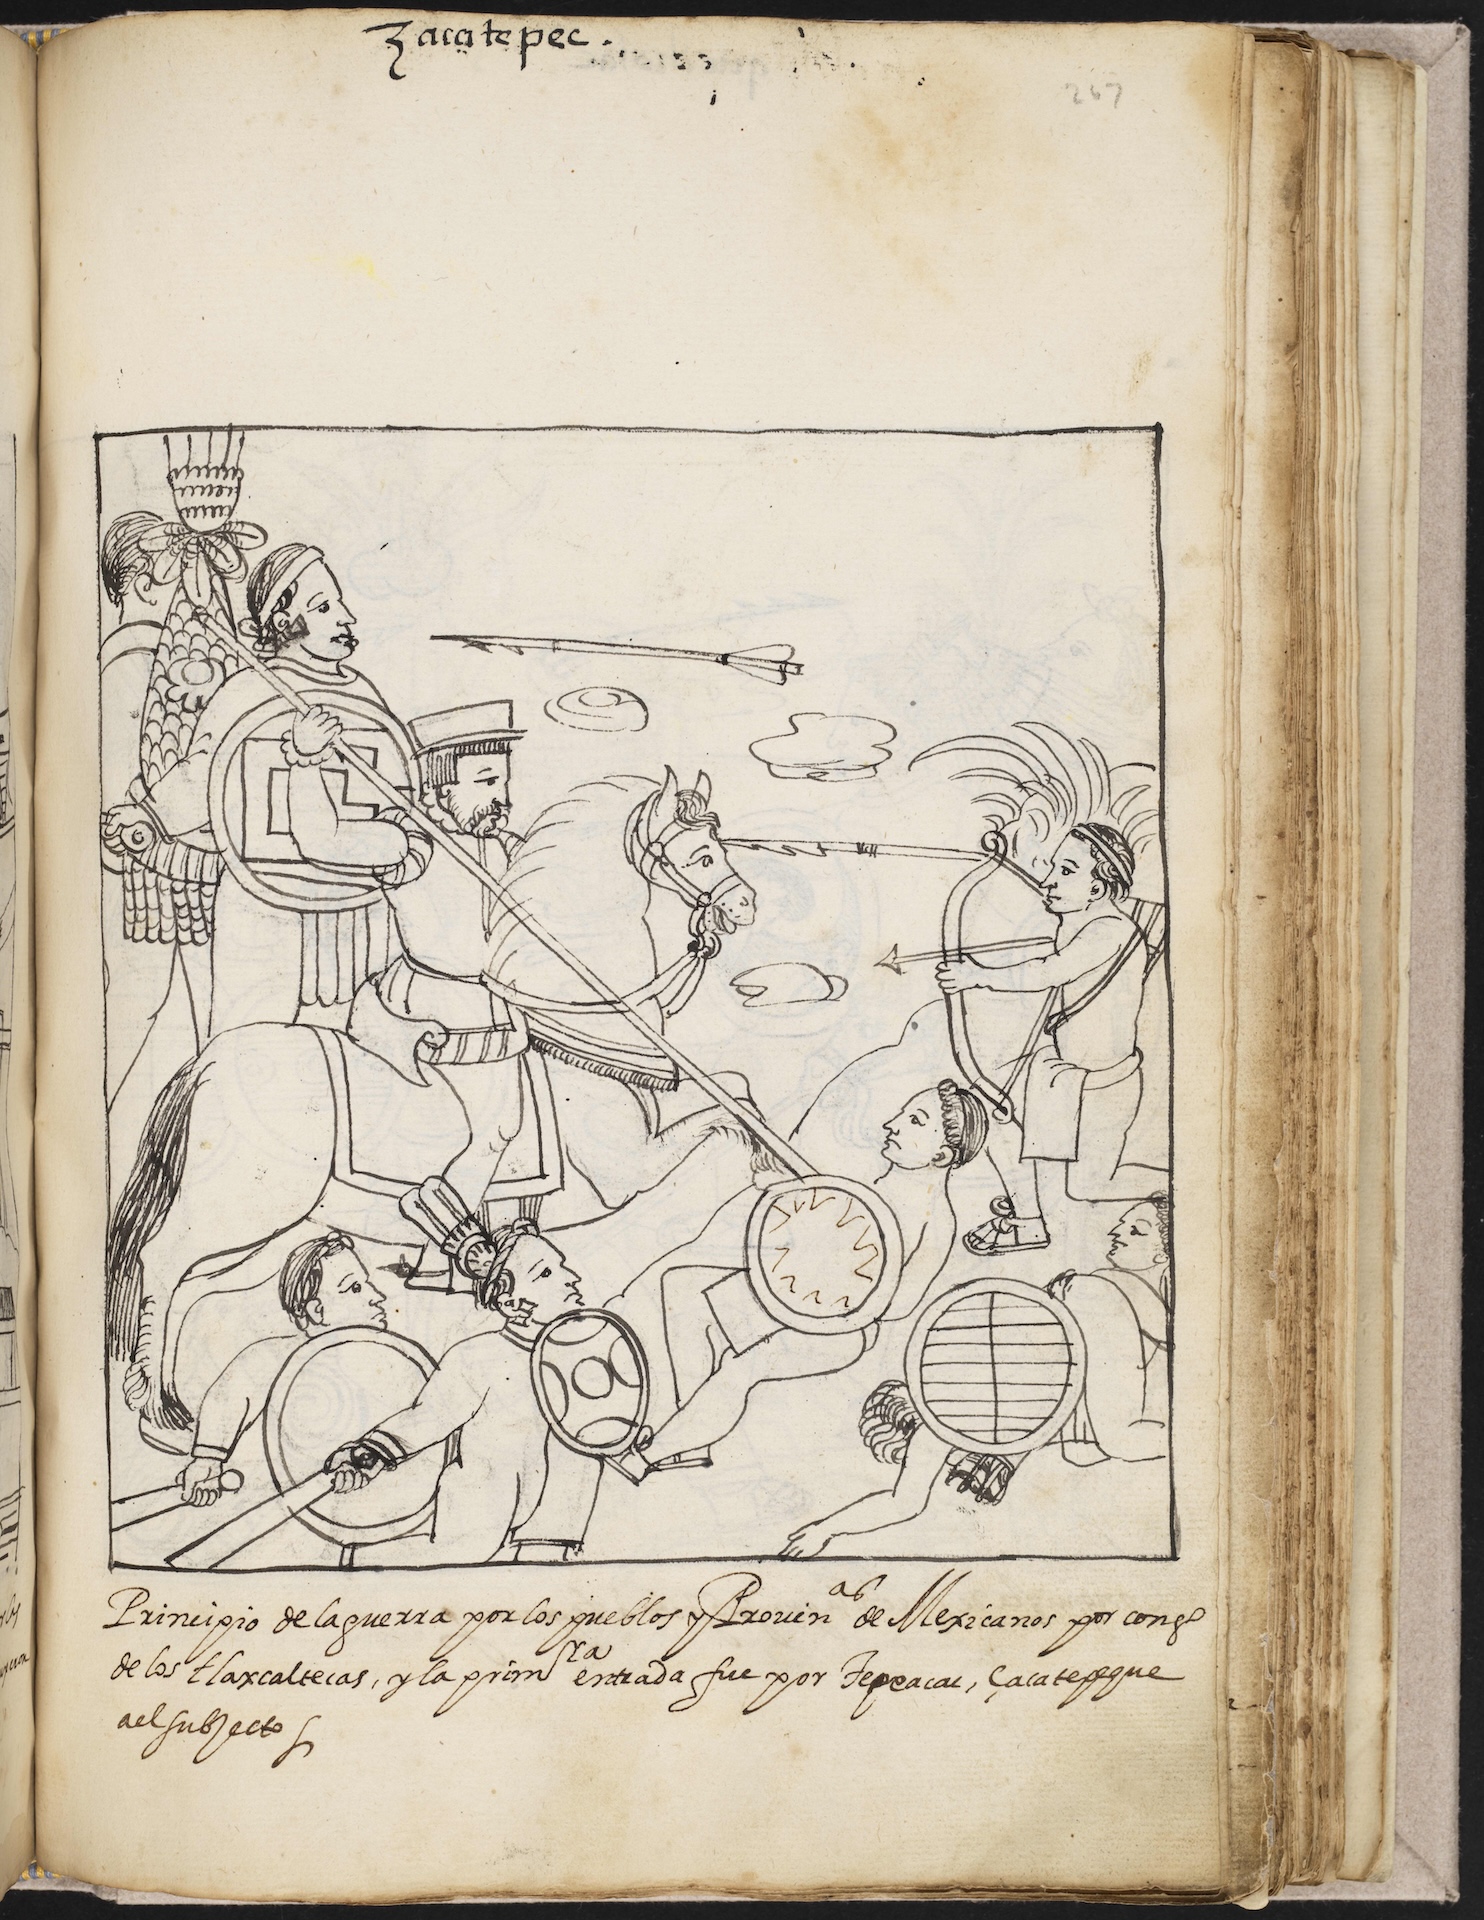 Zacatepec.
267
Principio de la guerra por los pueblos y Prouin^as de Mexicanos por cong^o
de los tlaxcaltecas, y la prim^ra entrada fue por Tepeacac, Çacatepeque
a el subjecto